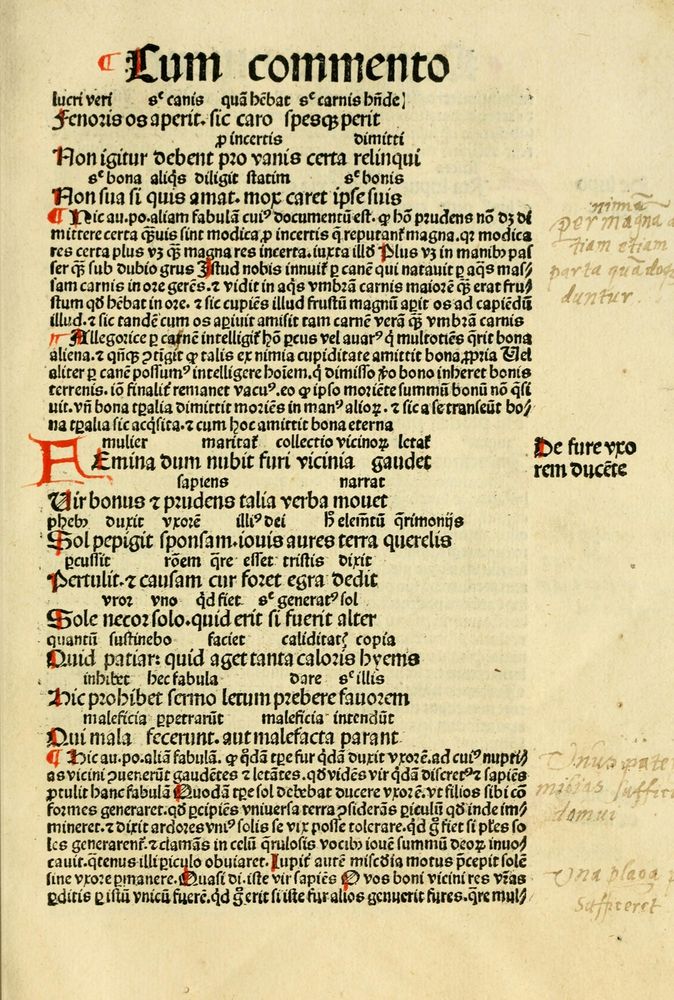 ¶ Cum commento
lucri veri sᶜ canis quā hēbat sᶜ carnis hn̄de
Fenoris os aperit. sic caro spesqꝫ perit
ꝓ incertis dimitti
Non igitur debent pro vanis certa relinqui
sᶜ bona aliqͥs diligit statim sᶜ bonis
Non sua si quis amat. mox caret ipse suis
¶ Hic au. po. aliam fabulā cuiꝰ documentū est. ꝙ hō prudens nō dꝫ di
mittere certa qͣꝫuis sint modica ꝓ incertis q̄ reputant̄ magna. qꝛ modica
res certa plus vꝫ qͣꝫ magna res incerta. iuxta illḋ Plus vꝫ in manibꝰ pas
ser qͣꝫ sub dubio grus Istud nobis innuit̄ ꝑ canē qui natauit ꝑ aq̄s mas⸗
sam carnis in ore gerēs. ⁊ vidit in aqͥs vmbrā carnis maiorē qͣꝫ erat fru⸗
stum qḋ hēbat in ore. ⁊ sic cupiēs illud frustū magnū aꝑit os ad capiēdū
illud. ⁊ sic tandē cum os aꝑiuit amisit tam carnē verā qͣꝫ vmbrā carnis
¶ Allegorice ꝑ canē intelligit̄ hō ꝑcus vel auarꝰ ꝗ multotiēs q̄rit bona
aliena. ⁊ qn̄qꝫ ↄtigit ꝙ talis ex nimia cupiditate amittit bona ꝓpria Uel
aliter ꝑ canē possumꝰ intelligere hoīem. ꝗ dimisso xp̄o bono inheret bonis
terrenis. iō finalit̄ remanet vacuꝰ. eo ꝙ ipso moriēte summū bonū nō qͣsi
uit. vn̄ bona tꝑalia dimittit moriēs in manꝰ alioꝝ. ⁊ sic a se transeūt bo⸗
na tꝑalia sic acqͥsita. ⁊ cum hoc amittit bona eterna
mulier maritat̄ collectio vicinoꝝ letat̄
FEmina dum nubit furi vicinia gaudet
sapiens narrat
Vir bonus ⁊ prudens talia verba mouet
phebꝰ duxit vxorē illiꝰ dei h̄ elemētū q̄rimonijs
Sol pepigit sponsam. iouis aures terra querelis
ꝑcussit rōem qͣre esset tristis dixit
Pertulit. ⁊ causam cur foret egra dedit
vror vno qḋ fiet sᶜ generatꝰ sol
Sole necor solo. quid erit si fuerit alter
quantū sustinebo faciet caliditatꝭ copia
Quid patiar: quid aget tanta caloris hyems
inhibet hec fabula dare sᶜ illis
Hic prohibet sermo letum prebere fauorem
maleficia ꝑpetrarūt maleficia intendūt
Qui mala fecerunt. aut malefacta parant
¶ Hic au. po. aliam fabulā. ꝙ qͥdā tp̄e fur qͣdā duxit vxorē. ad cuiꝰ nupti⸗
as vicini ↄuenerūt gaudētes ⁊ letātes. qḋ vidēs vir qͥdā discretꝰ ⁊ sapiēs
ꝓtulit hanc fabulā Quodā tp̄e sol debebat ducere vxorē. vt filios sibi cō
formes generaret. qḋ ꝑcipiēs vniuersa terra ↄsiderās ꝑiculū qḋ inde im⸗
mineret. ⁊ dixit ardores vniꝰ solis se vix posse tolerare. qḋ g̊ fiet si ples so
les generarent̄. ⁊ clamās in celū q̄rulosis vocibꝰ iouē summū deoꝝ inuo⸗
cauit. qͣtenus illi ꝑiculo obuiaret. Iupit̄ autē mīsc̄dia motus p̄cepit solē
sine vxore ꝑmanere. Quasi di. iste vir sapiēs O vos boni vicini res vr̄as
ꝑditis ꝑ istū vnicū furē. qḋ g̊ erit si iste fur alios genuerit fures. qͣre mul⸗
De fure vxo
rem ducēte
nimiā
per magna
tiam etiam
parta
duntur
Unus
domui
Una plaga